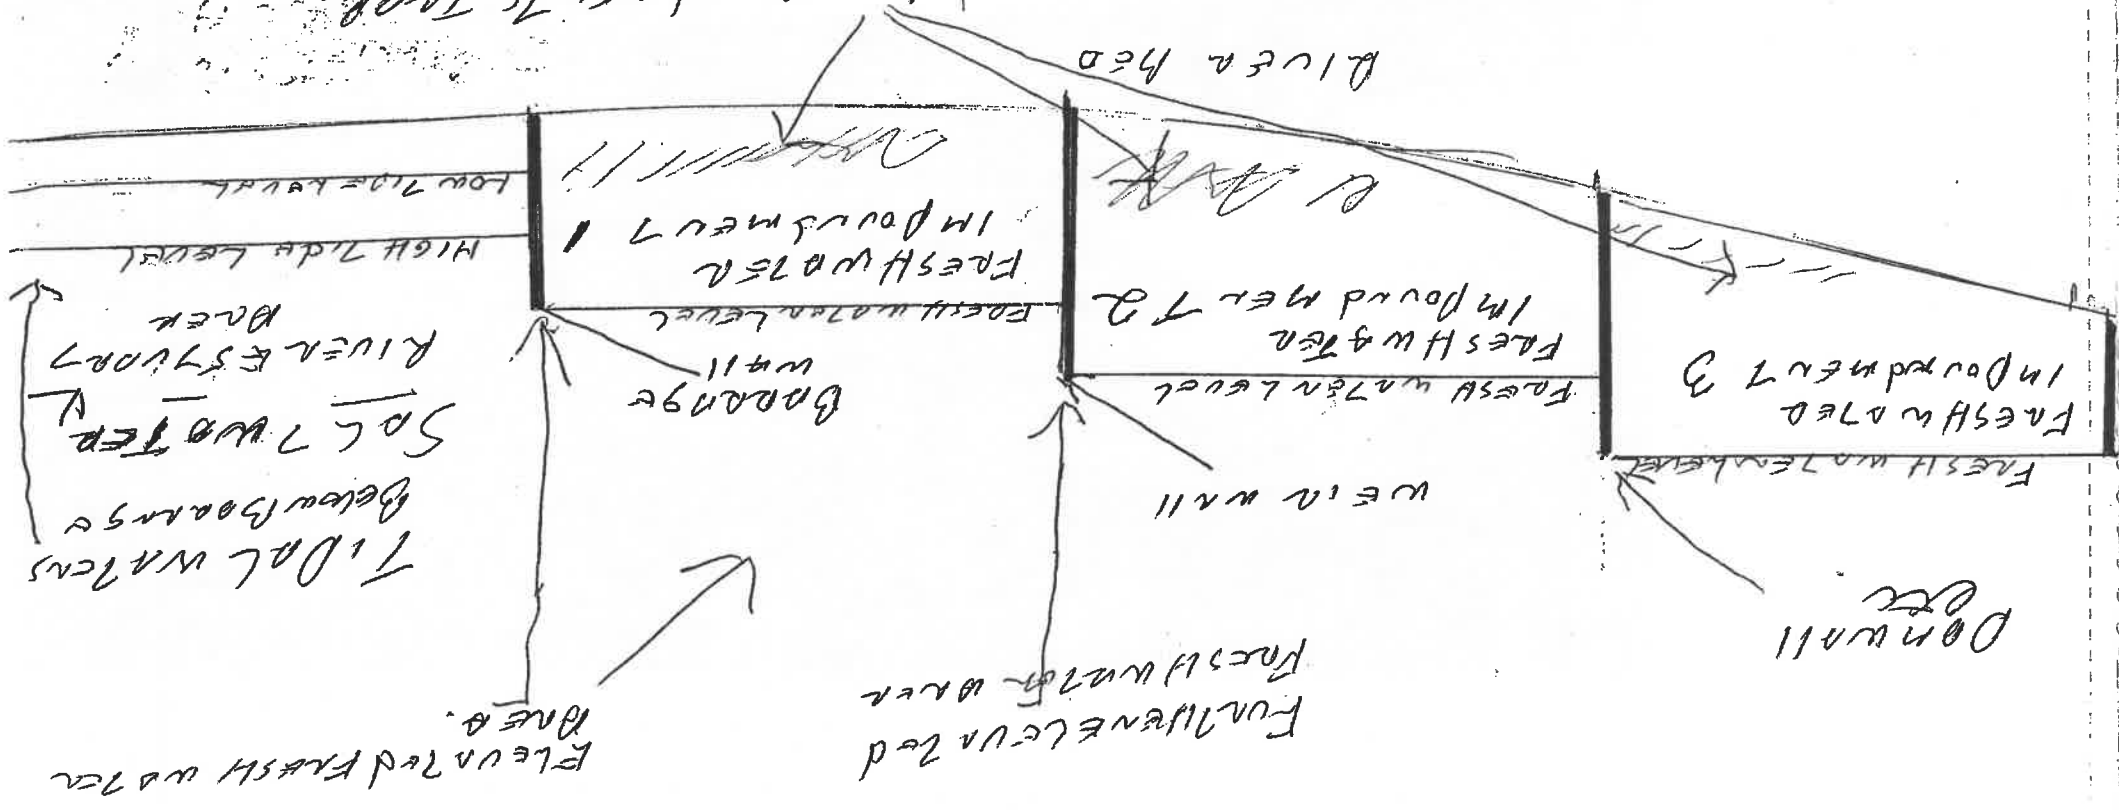 ELEVATED FRESH WATER
AREA.
FURTHER ELEVATED
FRESH WATER AREA
DAM WALL
ETC
TIDAL WATERS
BELOW BARRAGE
WEIR WALL
SALT WATER
RIVER ESTUARY
AREA
BARRAGE
WALL
FRESH WATER LEVEL
FRESH WATER
IMPOUNDMENT 3
FRESH WATER LEVEL
FRESH WATER
IMPOUNDMENT 2
FRESH WATER LEVEL
FRESH WATER
IMPOUNDMENT 1
HIGH TIDE LEVEL
LOW TIDE LEVEL
RIVER BED